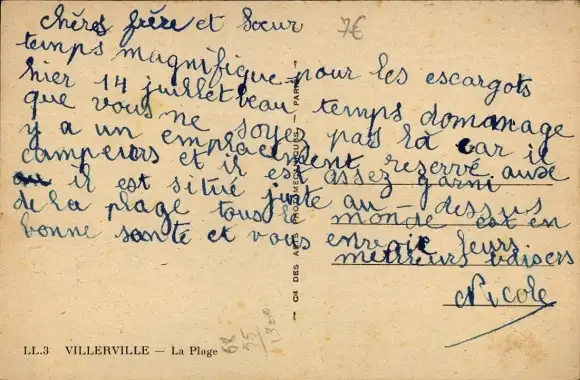 chéres frére et Soeur
temps magnifique pour les escargots
hier 14 juillet beau temps domanage
que vous ne soyez pas là car il
y a un emplacement reservé aux
campeurs et il est assez garni
il est situé juste au - dessus
de la plage tous le monde est en
bonne santé et vous envoie leurs
meilleurs baisers
Nicole
7€
— Cie DES ARTS PHOTOMECANIQUES - PARIS —
LL.3 VILLERVILLE — La Plage
68
55